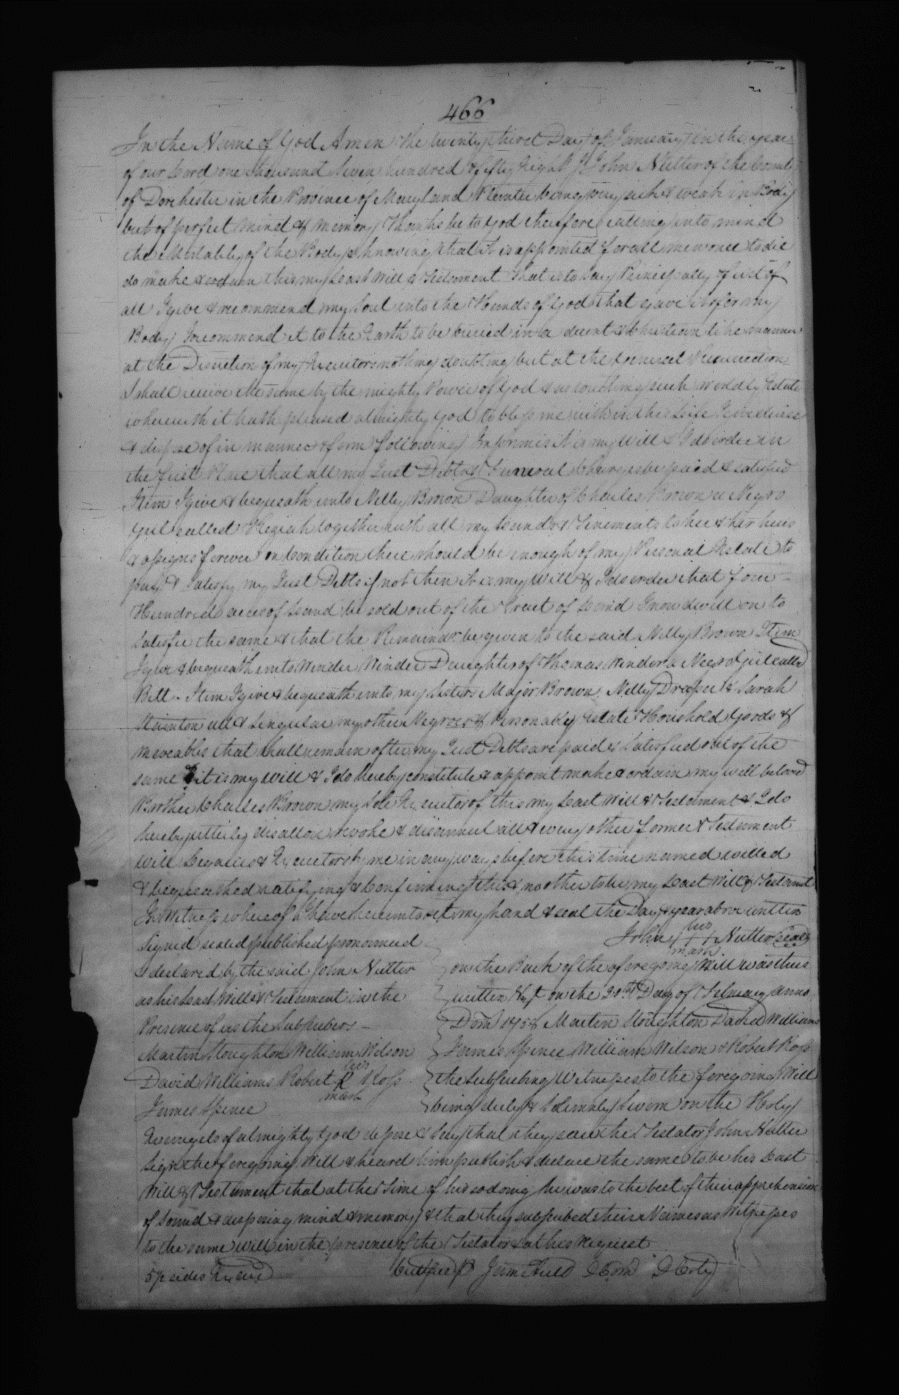 466
In the Name of God Amen the twenty third Day of January in the year
of our Lord one thousand seven hundred & fifty Eight I John Nutter of the County
of Dorchester in the Province of Maryland Planter being very sick & weak in Body
but of perfect Mind & Memory Thanks be to God therefore calling into mind
the Mortality of the Body & knowing that it is appointed for all men once to die
do make & ordain this my Last Will & Testament that is to say Principally & first of
all I give & recommend my Soul into the Hands of God that gave it & for my
Body I recommend it to the Earth to be buried in a decent & Christian like manner
at the Discretion of my Executors nothing doubting but at the General Resurrection
I shall receive the same by the mighty Power of God & as touching such worldly Estate
wherewith it hath pleased almighty God to bless me with in this Life I
& dispose of in manner & form following Imprimis it is my Will & I do order in
the first Place that all my Just Debts & Funeral Charges be paid & satisfied
Item I give & bequeath unto Nelly Brown Daughter of Charles Brown a Negro
Girl called together with all my Lands & Tenements to her & her heirs
& assigns forever on Condition there should be enough of my Personal Estate to
pay & satisfy my Just Debts if not then it is my Will & I do order that four
Hundred acres of Land be sold out of the Tract of Land I now dwell on to
satisfie the same & that the Remainder be given to the said Nelly Brown Item
I give & bequeath unto Winder Daughter of Thomas Winder a Negro Girl called
Bett Item I give & bequeath unto my Sisters Major Brown Nelly Draper & Sarah
Stainton all & singular my other Negroes & Personable Estate Houshold Goods &
moveables that shall remain after my Just Debts are paid & satisfied out of the
same & it is my will & I do hereby constitute & appoint make & ordain my well beloved
Brother Charles Brown my sole Executor of this my Last Will & Testament & I do
hereby utterly disallow revoke & disannul all & every other former Testament
Will Legacies & Executors by me in any ways before this time named willed
& bequeathed ratifying & Confirming this & no other to be my Last Will & Testament
In Witness whereof I have hereunto set my hand & seal the Day & year above written
Signed sealed published pronounced
& declared by the said John Nutter
as his Last Will & Testament in the
Presence of us the Subscribers
Martin Houghton William Wilson
his
David Williams Robert R Ross
mark
James Spence
his
John Nutter Seal
mark
on the Back of the aforegoing Will was thus
written on the Day of February Anno
Dom 1758 Martin Houghton David Williams
James Spence William Wilson & Robert Ross
the Subscribing Witnesses to the foregoing Will
being duly & solemnly sworn on the Holy
Evangels of almighty God depose & say that they saw the Testator John Nutter
sign the foregoing Will & heard him publish & declare the same to be his Last
Will & Testament that at the time of his so doing he was to the best of their apprehension
of sound & disposing mind & memory & that they subscribed their Names as Witnesses
to the same will in the presence of the Testator & at his Request
sides